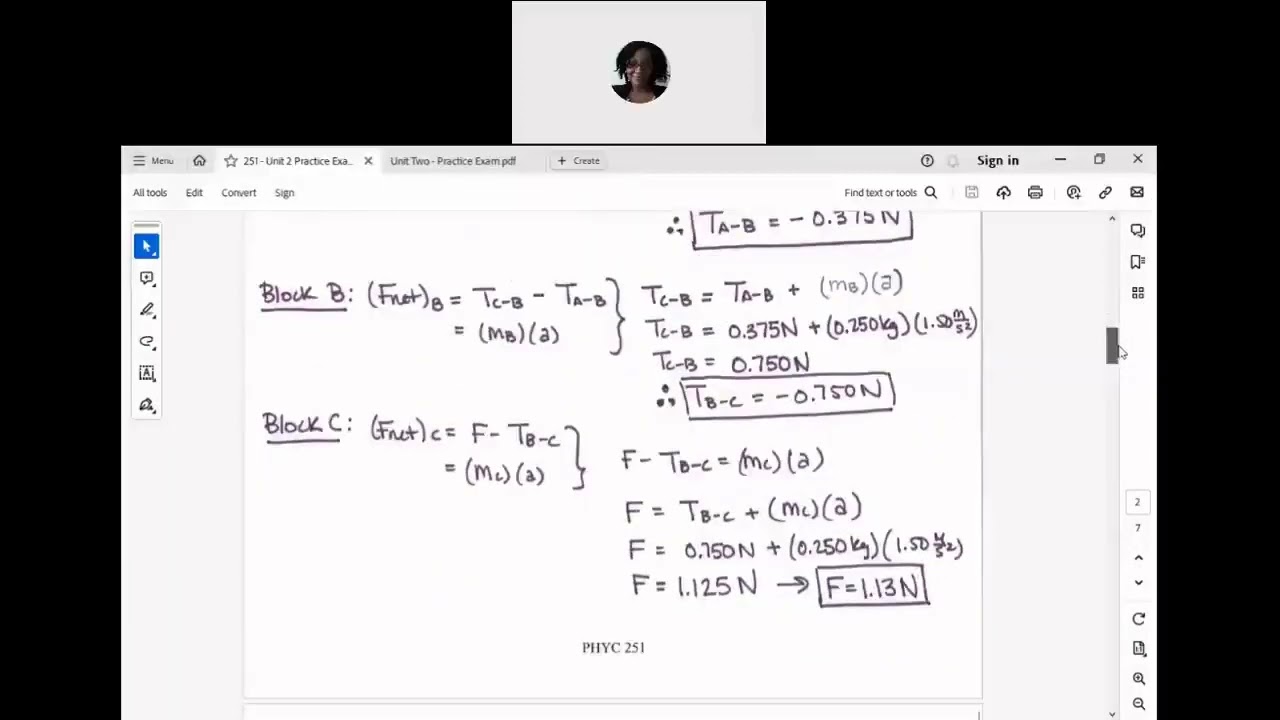 Menu
251 - Unit 2 Practice Exa...
Unit Two - Practice Exam.pdf
+ Create
Sign in
All tools Edit Convert Sign
Find text or tools
∴ T_A-B = - 0.375N
Block B: (Fnet)_B = T_C-B - T_A-B
= (m_B)(a)
T_C-B = T_A-B + (m_B)(a)
T_C-B = 0.375N + (0.250kg)(1.50 m/s²)
T_C-B = 0.750N
∴ T_B-C = -0.750N
Block C: (Fnet)_C = F - T_B-C
= (m_C)(a)
F - T_B-C = (m_C)(a)
F = T_B-C + (m_C)(a)
F = 0.750N + (0.250kg)(1.50 m/s²)
F = 1.125N → F = 1.13N
PHYC 251
2
7